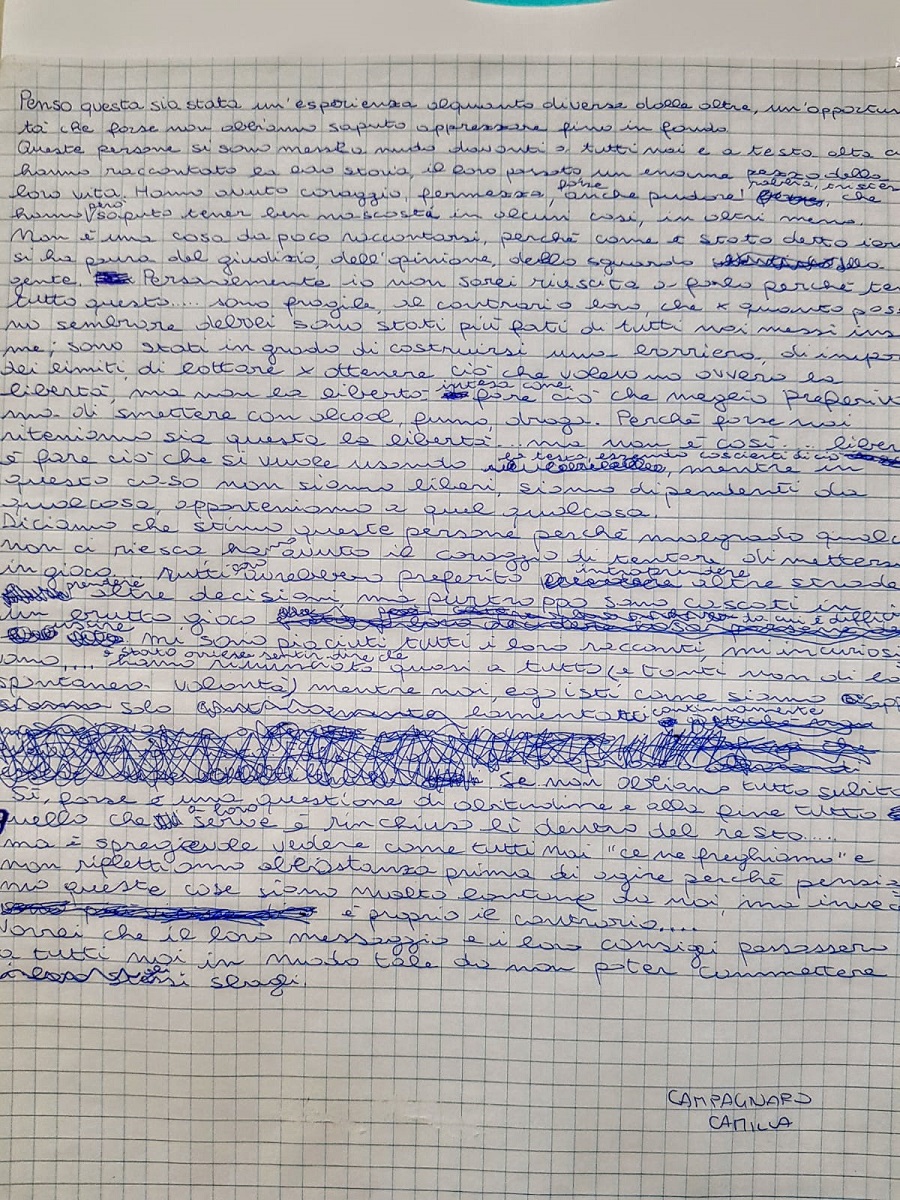 Penso questa sia stata un'esperienza alquanto diversa dalle altre, un'opportun
tà che forse non abbiamo saputo apprezzare fino in fondo.
Queste persone si sono messe a nudo davanti a tutti noi e a testa alta ci
hanno raccontato la loro storia, il loro passato un enorme pezzo della
loro vita. Hanno avuto coraggio, fermezza, forse anche pudore! che
hanno però saputo tener ben nascosta in alcuni casi, in altri meno.
Non è una cosa da poco raccontarsi, perché come è stato detto ieri
si ha paura del giudizio, dell'opinione, dello sguardo della
gente. Personalmente io non sarei riuscita a farlo perché te
tutto questo.... sono fragile, al contrario loro, che x quanto poss
no sembrare deboli sono stati più forti di tutti noi messi ins
me; sono stati in grado di costruirsi una barriera, di impor
dei limiti di lottare x ottenere ciò che volevano ovvero la
libertà, ma non la libertà intesa come fare ciò che meglio preferiv
ma di smettere con alcool, fumo, droga. Perché forse noi
riteniamo sia questa la libertà... ma non è così... liber
è fare ciò che si vuole usando la testa, essendo coscienti di ciò, mentre in
questo caso non siamo liberi, siamo dipendenti da
qualcosa, apparteniamo a quel qualcosa.
Diciamo che stimo queste persone perché malgrado qualc
non ci riesca hanno avuto il coraggio di tentare, di mettersi
in gioco... tutti loro avrebbero preferito intraprendere altre strade
prendere altre decisioni ma purtroppo sono cascati in
un brutto gioco da cui è diffici
mi sono piaciuti tutti i loro racconti mi incuriosi
ano.... è stato sentir dire che hanno rinunciato quasi a tutto (e tanti non di lo
spontanea volontà) mentre noi, egoisti come siamo
solo lamentarci continuamente
se non abbiamo tutto subito
Sì, forse è una questione di abitudine e alla fine tutto
quello che a loro serve è rinchiuso lì dentro del resto.....
ma è spregevole vedere come tutti noi "ce ne freghiamo" e
non riflettiamo abbastanza prima di agire perché pensia
mo queste cose siano molto lontane da noi, ma invece
è proprio il contrario....
Vorrei che il loro messaggio e i loro consigi passassero
a tutti noi in modo tale da non poter commettere
i loro stessi sbagi.
CAMPAGNARO
CAMILLA